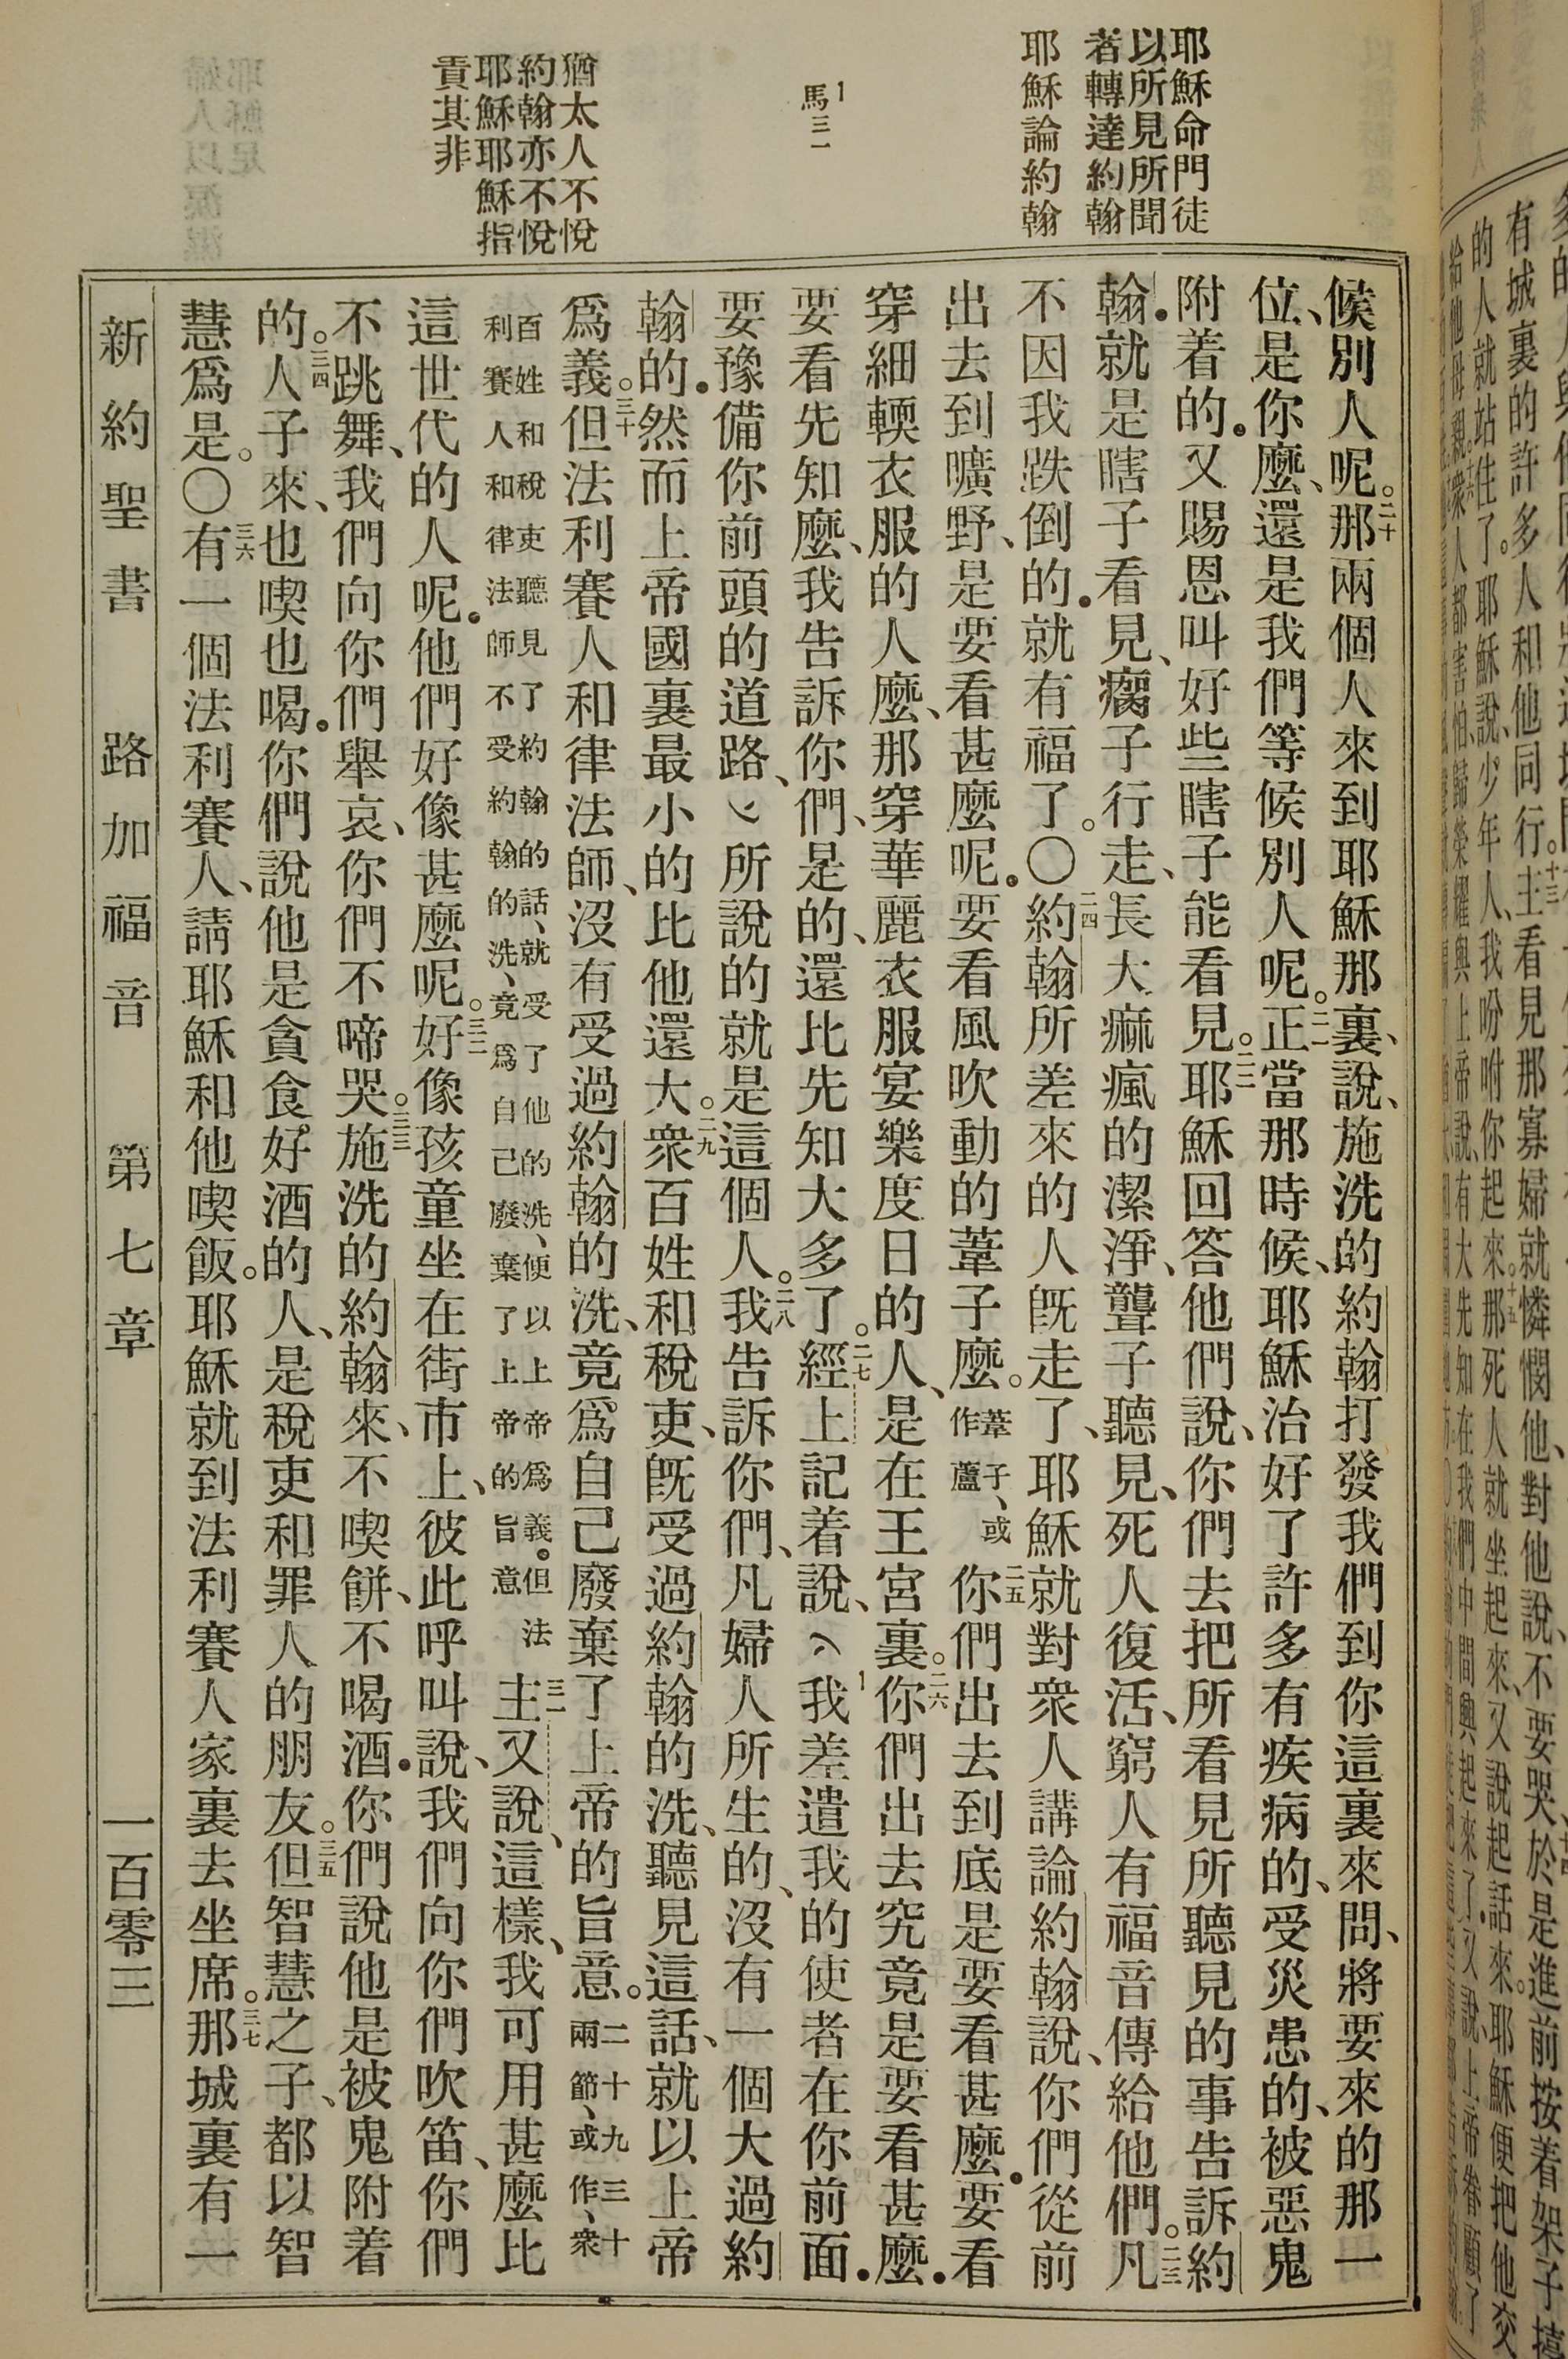 耶穌命門徒
以所見所聞
者轉達約翰
耶穌論約翰
1
馬三一
猶太人不悅
約翰亦不悅
耶穌耶穌指
責其非
候別人呢。二十那兩個人來到耶穌那裏、說、施洗的約翰打發我們到你這裏來問、將要來的那一
位、是你麼、還是我們等候別人呢。二一正當那時候、耶穌治好了許多有疾病的、受災患的、被惡鬼
附着的．又賜恩叫好些瞎子能看見。二二耶穌回答他們說、你們去把所看見所聽見的事告訴約
翰．就是瞎子看見、瘸子行走、長大痲瘋的潔淨、聾子聽見、死人復活、窮人有福音傳給他們。二三凡
不因我跌倒的．就有福了。〇二四約翰所差來的人既走了、耶穌就對衆人講論約翰說、你們從前
出去到曠野、是要看甚麼呢．要看風吹動的葦子麼。葦子、或作蘆二五你們出去到底是要看甚麼．要看
穿細輭衣服的人麼、那穿華麗衣服宴樂度日的人、是在王宮裏。二六你們出去究竟是要看甚麼．
要看先知麼、我告訴你們、是的、還比先知大多了。二七經上記着說、1我差遣我的使者在你前面．
要豫備你前頭的道路、所說的就是這個人。二八我告訴你們、凡婦人所生的、沒有一個大過約
翰的．然而上帝國裏最小的比他還大。二九衆百姓和稅吏、既受過約翰的洗、聽見這話、就以上帝
爲義。三十但法利賽人和律法師、沒有受過約翰的洗、竟爲自己廢棄了上帝的旨意。二十九三十兩節、或作、衆
百姓和稅吏聽見了約翰的話、就受了他的洗、便以上帝爲義．但法
利賽人和律法師不受約翰的洗、竟爲自己廢棄了上帝的旨意三一主又說、這樣、我可用甚麼比
這世代的人呢．他們好像甚麼呢。三二好像孩童坐在街市上、彼此呼叫說、我們向你們吹笛、你們
不跳舞、我們向你們舉哀、你們不啼哭。三三施洗的約翰來、不喫餅、不喝酒．你們說他是被鬼附着
的。三四人子來、也喫也喝．你們說他是貪食好酒的人、是稅吏和罪人的朋友。三五但智慧之子、都以智
慧爲是。〇三六有一個法利賽人、請耶穌和他喫飯。耶穌就到法利賽人家裏去坐席。三七那城裏有一
新約聖書 路加福音 第七章 一百零三